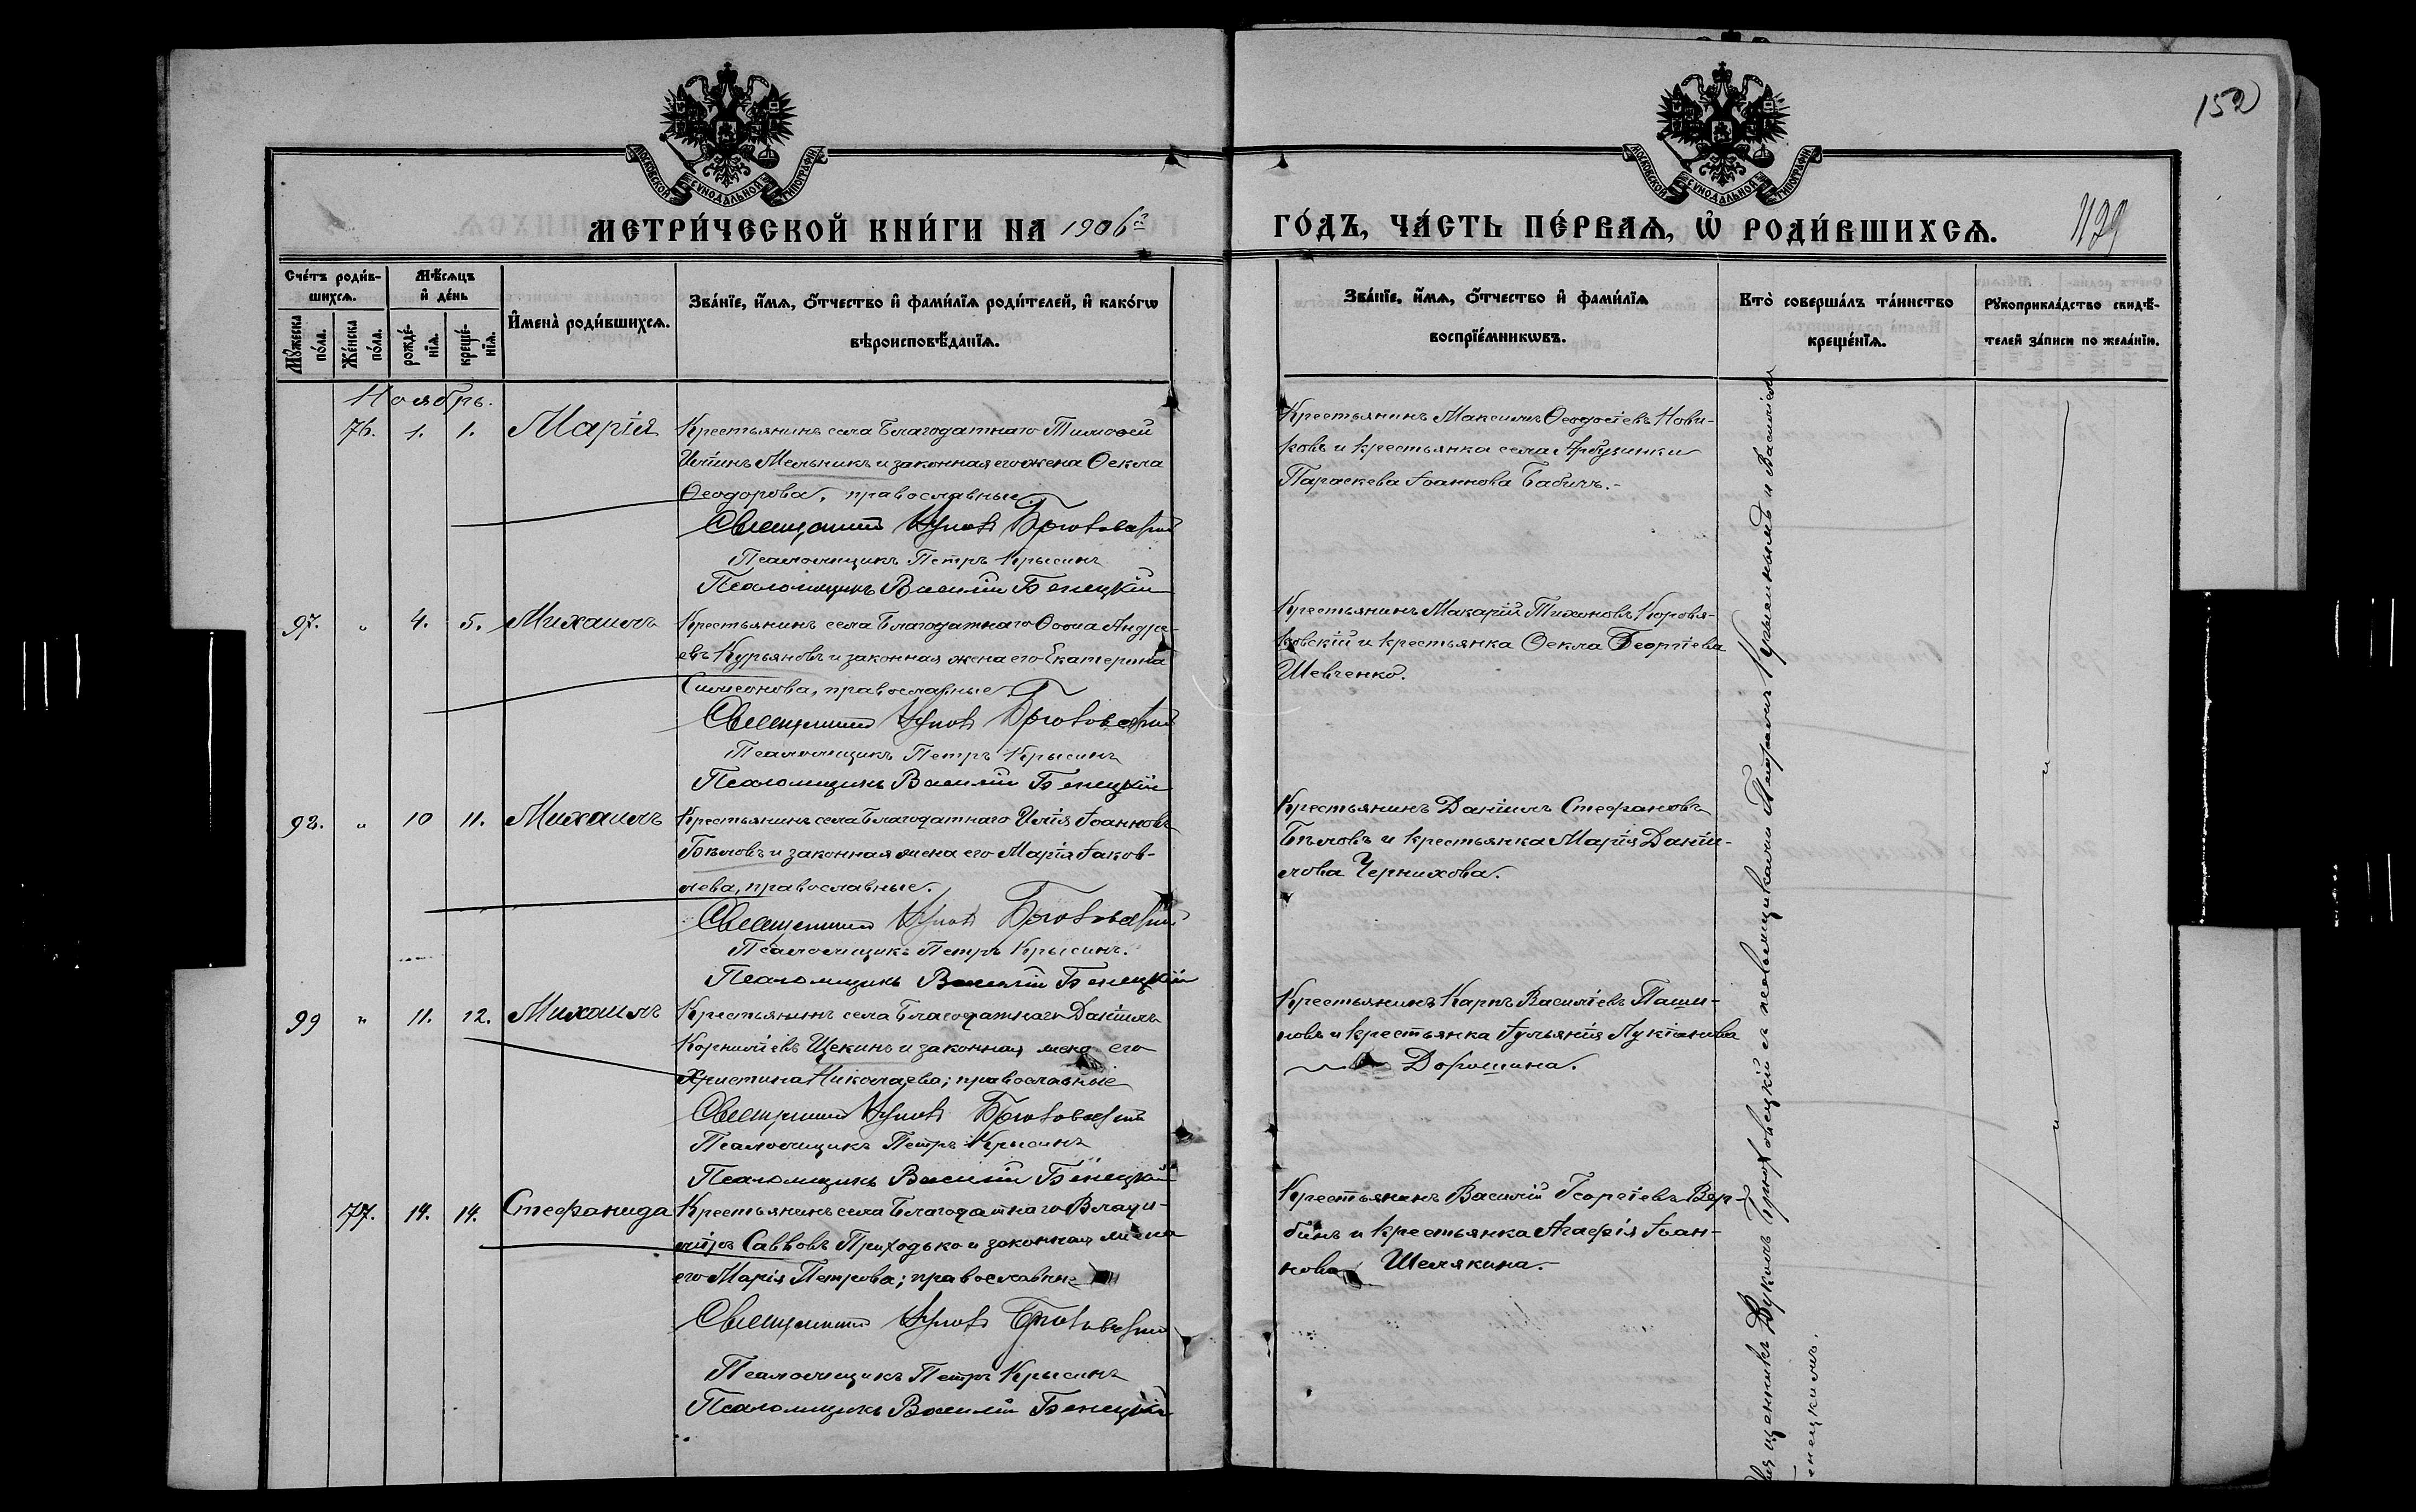 152
МОСКОВСКОЙ СѴНОДАЛЬНОЙ ТИПОГРАФІИ
МОСКОВСКОЙ СѴНОДАЛЬНОЙ ТИПОГРАФІИ
МЕТРИ́ЧЕСКОЙ КНИ́ГИ НА 1906й
ГО́ДЪ, ЧА́СТЬ ПЕ́РВАѦ, Ѡ҆ РОДИ́ВШИХСѦ.
1129
Сче́тъ роди́в-
шихсѧ.
Мѣ́сѧцъ
и҆ де́нь
Мꙋ́жеска по́ла.
Же́нска по́ла.
рожде́-
нїѧ.
креще́-
нїѧ.
И҆мена̀ роди́вшихсѧ.
Зва́нїе, и҆́мѧ, ѻ҆́тчество и҆ фами́лїѧ роди́телей, и҆ како́гѡ
вѣроисповѣ́данїѧ.
Зва́нїе, и҆́мѧ, ѻ҆́тчество и҆ фами́лїѧ
воспрїе́мникѡвъ.
Кто̀ соверша́лъ та́инство
креще́нїѧ.
Рꙋкоприкла́дство свидѣ́-
телей за́писи по жела́нїю.
Ноябрь.
76. 1. 1. Марія
Крестьянинъ села Благодатнаго Тимоѳей
Иліинъ Мельникъ и законная его жена Ѳекла
Ѳеодорова, православные.
Священникъ Вуколъ Бржовецкій
Псаломщикъ Петръ Крысинъ
Псаломщикъ Василій Бенецкій
Крестьянинъ Максимъ Ѳеодосіевъ Нови-
ковъ и крестьянка села Арбузинки
Параскева Іоаннова Бабичъ.-
97. " 4. 5. Михаилъ
Крестьянинъ села Благодатнаго Ѳома Андре-
евъ Курьяновъ и законная жена его Екатерина
Симеонова, православные
Священникъ Вуколъ Бржовецкій
Псаломщикъ Петръ Крысинъ
Псаломщикъ Василій Бенецкій
Крестьянинъ Макарій Тихоновъ Коровя-
ковскій и крестьянка Ѳекла Георгіева
Шевченко.
98. " 10 11. Михаилъ
Крестьянинъ села Благодатнаго Илія Іоанновъ
Бѣловъ и законная жена его Марія Іаков-
лева, православные.
Священникъ Вуколъ Бржовецкій
Псаломщикъ Петръ Крысинъ.
Псаломщикъ Василій Бенецкій
Крестьянинъ Даніилъ Стефановъ
Бѣловъ и крестьянка Марія Даніи-
лова Чернихова.
99 " 11. 12. Михаилъ
Крестьянинъ села Благодатнаго Даніилъ
Корниліевъ Щекинъ и законная жена его
Христина Николаева; православные
Священникъ Вуколъ Бржовецкій
Псаломщикъ Петръ Крысинъ
Псаломщикъ Василій Бенецкій
Крестьянинъ Карпъ Василіевъ Паши-
новъ и крестьянка Іульянія Лукіанова
Дорошина.
77. 14. 14. Стефанида
Крестьянинъ села Благодатнаго Влади-
міръ Саввовъ Приходько и законная жена
его Марія Петрова; православные
Священникъ Вуколъ Бржовецкій
Псаломщикъ Петръ Крысинъ
Псаломщикъ Василій Бенецкій
Крестьянинъ Василій Георгіевъ Вер-
бинъ и крестьянка Агафія Іоан-
нова Шелякина.-
Священникъ Вуколъ Бржовецкій съ псаломщиками Петромъ Крысинымъ и Василіемъ
Бенецкимъ.